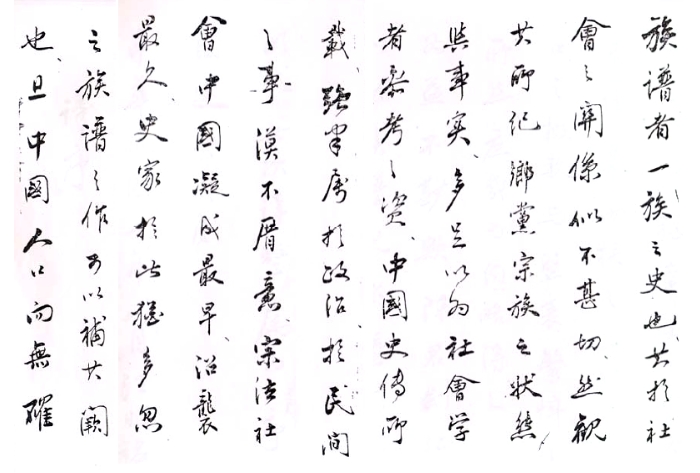 族譜者一族之史也其於社
會之關係似不甚切然觀
其所紀鄉黨宗族之狀態
與事實多足以為社會学
者參考之資中國史傳所
載強半屬於政治於民间
之事漠不厝意宗法社
會中國凝成最早沿襲
最久史家於此猶多忽
之族譜之作可以補其闕
也且中國人口向無確